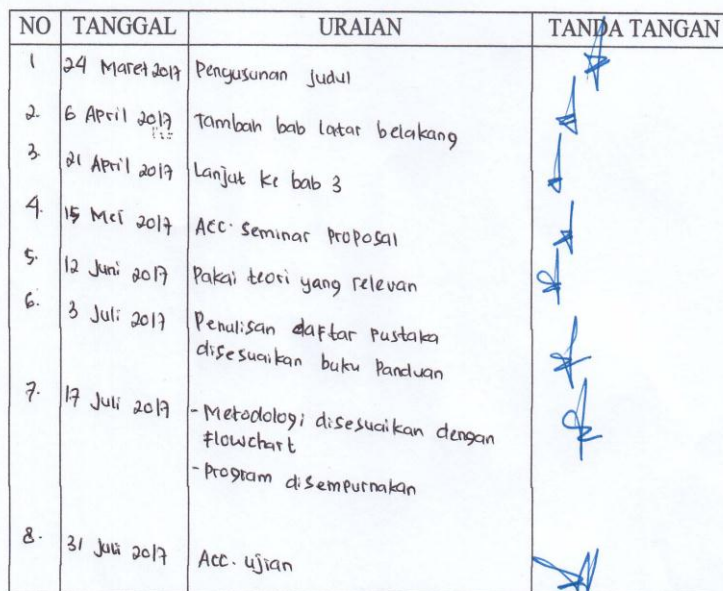 NO TANGGAL URAIAN TANDA TANGAN
1 24 Maret 2017 Pengusunan Judul
2. 6 April 2017 Tambah bab latar belakang
3. 21 April 2017 Lanjut ke bab 3
4. 15 Mei 2017 Acc. Seminar Proposal
5. 12 Juni 2017 Pakai teori yang relevan
6. 3 Juli 2017 Penulisan daftar Pustaka
disesuaikan buku Panduan
7. 17 Juli 2017 - Metodologi disesuaikan dengan
flowchart
- Program disempurnakan
8. 31 Juli 2017 Acc. Ujian